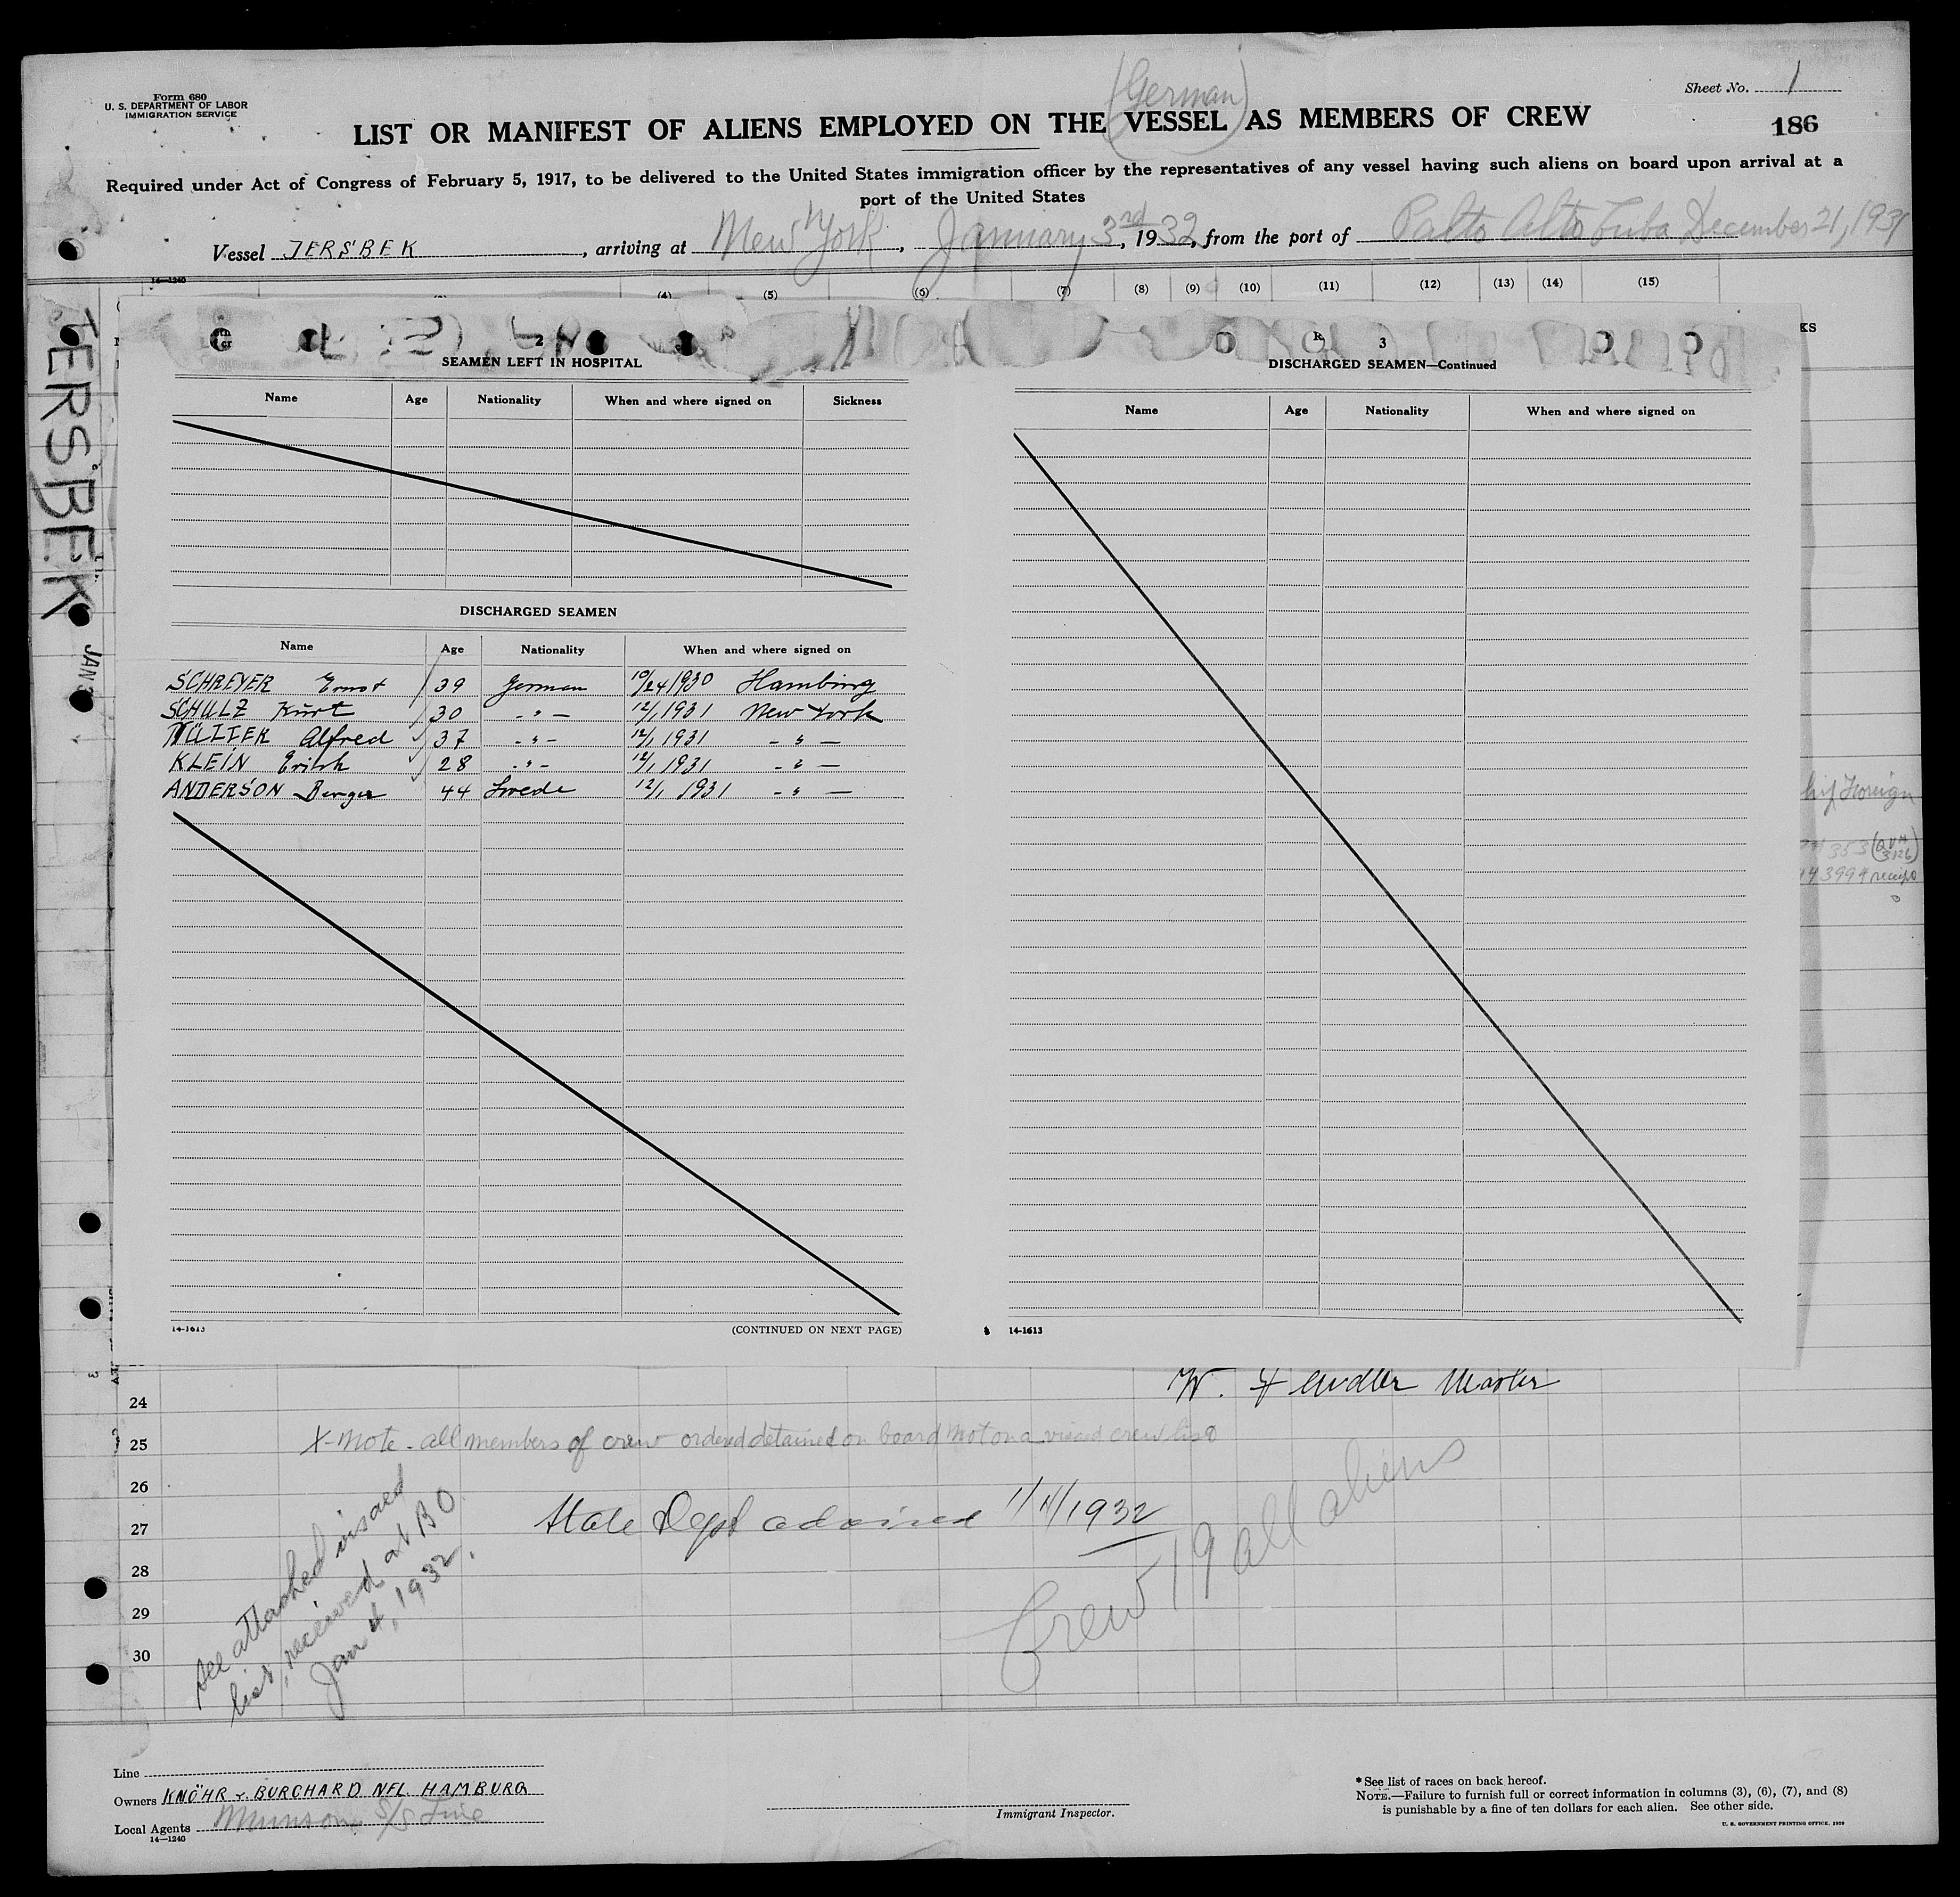 Form 680
U. S. DEPARTMENT OF LABOR
IMMIGRATION SERVICE
(German)
Sheet No. 1
LIST OR MANIFEST OF ALIENS EMPLOYED ON THE VESSEL AS MEMBERS OF CREW
186
Required under Act of Congress of February 5, 1917, to be delivered to the United States immigration officer by the representatives of any vessel having such aliens on board upon arrival at a
port of the United States
Vessel JERSBEK, arriving at New York, January 3rd, 1932, from the port of Palto Alto Cuba December 21, 1931
14—1240
(4) (5) (6) (7) (8) (9) (10) (11) (12) (13) (14) (15)
JERSBEK
JAN 3
KS
2
SEAMEN LEFT IN HOSPITAL
Name Age Nationality When and where signed on Sickness
DISCHARGED SEAMEN
Name Age Nationality When and where signed on
SCHREYER Ernst 39 German 10/24 1930 Hamburg
SCHULZ Kurt 30 - " - 12/1 1931 New York
Alfred 37 - " - 12/1 1931 - " -
KLEIN Erich 28 - " - 12/1 1931 - " -
ANDERSON 44 Swede 12/1 1931 - " -
14-1613
(CONTINUED ON NEXT PAGE)
3
DISCHARGED SEAMEN—Continued
Name Age Nationality When and where signed on
14-1613
Foreign
353
3994
W. Master
24
25 X-Note - all members of crew ordered detained on board not on a visaed crew list
26
27 State Dept advised 1/4/1932
28
29
30
See attached visaed
list, received at B O
Jan 4, 1932.
Crew 19 all aliens
Line
Owners KNÖHR & BURCHARD NFL. HAMBURG
Local Agents Munson S/S Line
14—1240
Immigrant Inspector.
* See list of races on back hereof.
NOTE.—Failure to furnish full or correct information in columns (3), (6), (7), and (8)
is punishable by a fine of ten dollars for each alien. See other side.
U. S. GOVERNMENT PRINTING OFFICE, 1929